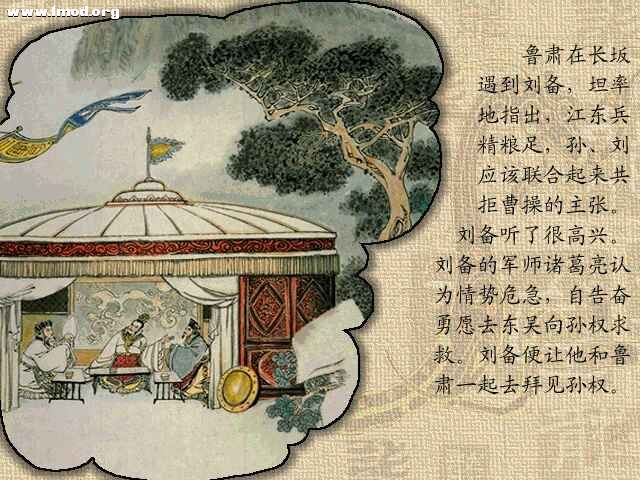 www.lmod.org
鲁肃在长坂
遇到刘备，坦率
地指出，江东兵
精粮足，孙、刘
应该联合起来共
拒曹操的主张。
刘备听了很高兴。
刘备的军师诸葛亮认
为情势危急，自告奋
勇愿去东吴向孙权求
救。刘备便让他和鲁
肃一起去拜见孙权。